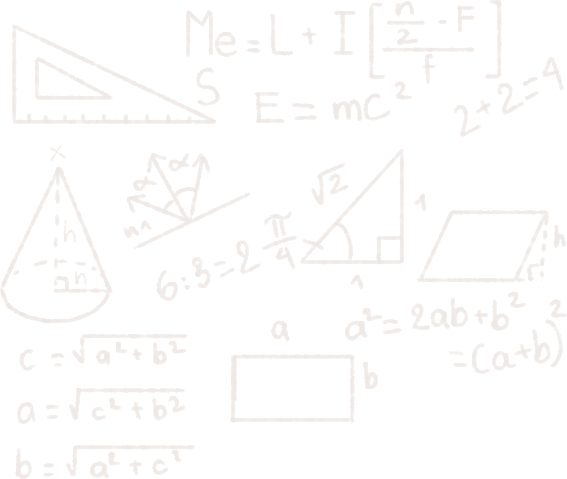 Me = L + I [ (n/2 - F) / f ]
S
E = mc²
2+2=4
x
α α
n1
h
n
√2
1
π/4
1
6:3=2
h
r
a² = 2ab+b²
=(a+b)²
a
b
c = √a²+b²
a = √c²+b²
b = √a²+c²